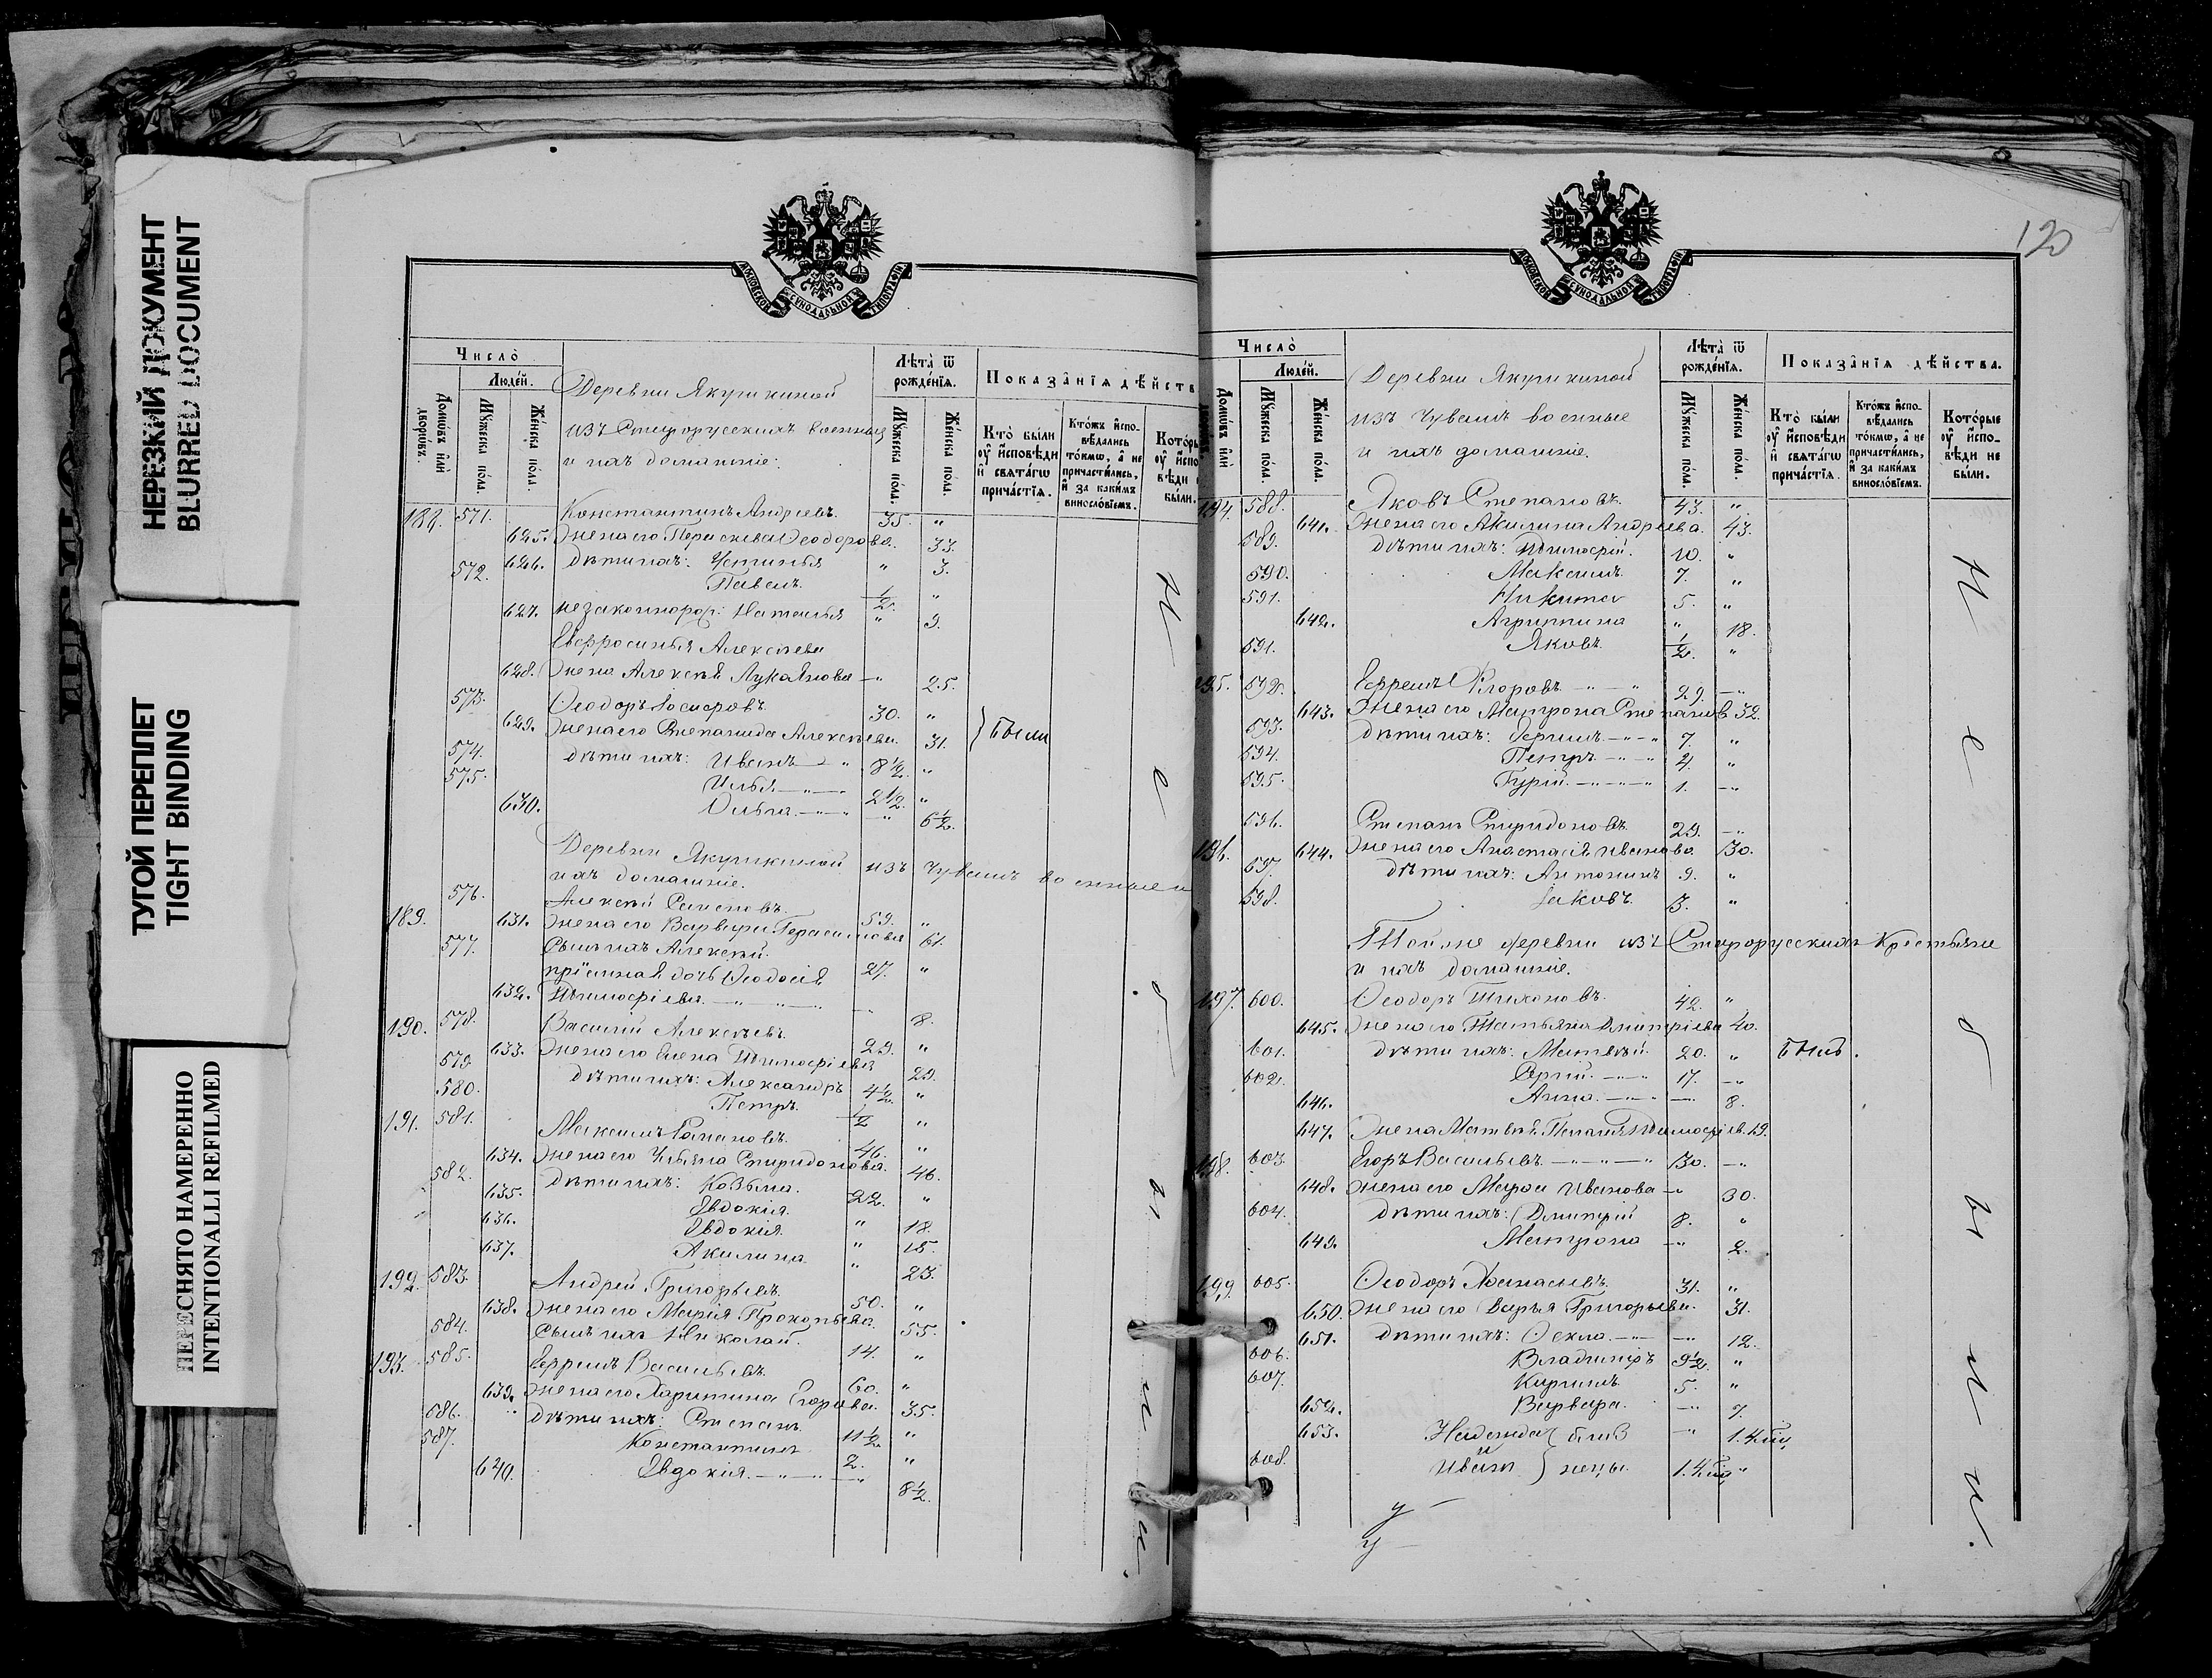 НЕРЕЗКИЙ ДОКУМЕНТ
BLURRED DOCUMENT
ТУГОЙ ПЕРЕПЛЕТ
TIGHT BINDING
ПЕРЕСНЯТО НАМЕРЕННО
INTENTIONALLI REFILMED
МОСКОВСКОЙ СѴНОДАЛЬНОЙ ТИПОГРАФІИ
Число̀
Люде́й.
Домѡ́въ и҆лѝ дворѡ́въ.
Мꙋ́жеска по́ла.
Же́нска по́ла.
Деревни Якушкиной
изъ Старорусскихъ военныя
и ихъ домашніе:
Лѣта̀ ѿ рожде́нїѧ.
Мꙋ́жеска по́ла.
Же́нска по́ла.
Показа̑нїѧ дѣ́йств
Кто̀ бы́ли ᲂу҆ и҆сповѣ́ди и҆ свѧта́гѡ прича́стїѧ.
Кто́жъ и҆спо-вѣ́дались то́кмѡ, а҆ не причасти́лись, и҆ за каки́мъ винносло́вїемъ.
188. 571. Константинъ Андреевъ. 35. "
625. Жена его Параскева Ѳеодорова. 33.
626. дѣти ихъ: Устинья " 3.
572. Павелъ. 1/2. "
627. незаконнорож: Наталья " 9.
Евфросинья Алексѣева
628. Жена Алексѣя Лукоянова — " 25.
573. Ѳеодоръ Іосифовъ. 30. "
629. Жена его Степанида Алексѣева. 31. } Были
574. дѣти ихъ: Иванъ — " 8 1/2. "
575. Илья — " — 2 1/2. "
630. Ольга. — " — " 6 1/2.
Деревни Якушкиной изъ Чувашъ военные и
ихъ домашніе.
189. 576. Алексѣй Семеновъ. 59. "
631. Жена его Варвара Герасимова 61.
577. Сынъ ихъ Алексѣй. 27. "
пріемная дочь Ѳеодосія
632. Тимофѣева. — " — 8.
190. 578. Василій Алексѣевъ. 29. "
633. Жена его Елена Тимофѣева 29.
579. дѣти ихъ: Александръ 4 1/2. "
580. Петръ. 1/2 "
191. 581. Максимъ Романовъ. 46. "
634. Жена его Ульяна Спиридонова. 46.
582. дѣти ихъ: Козьма. 22. "
635. Евдокія. " 18
636. Евдокія. " 15.
637. Акилина " 23.
192. 583. Андрей Григорьевъ. 50. "
638. Жена его Марія Прокопьева. 55.
584. Сынъ ихъ Николай. 14. "
193. 585. Ефремъ Васильевъ. 60. "
639. Жена его Харитина Егорова. 35.
586. дѣти ихъ: Степанъ. 11 1/2. "
587. Константинъ 2. "
640. Евдокія. — " — 8 1/2.
Не были.
120
МОСКОВСКОЙ СѴНОДАЛЬНОЙ ТИПОГРАФІИ
Число̀
Люде́й.
Домѡ́въ и҆лѝ
Мꙋ́жеска по́ла.
Же́нска по́ла.
Деревни Якушкиной
изъ Чувашъ военные
и ихъ домашніе.
Лѣта̀ ѿ рожде́нїѧ.
Мꙋ́жеска по́ла.
Же́нска по́ла.
Показа̑нїѧ дѣ́йства.
Кто̀ бы́ли ᲂу҆ и҆сповѣ́ди и҆ свѧта́гѡ прича́стїѧ.
Кто́жъ и҆спо-вѣ́дались то́кмѡ, а҆ не причасти́лись, и҆ за каки́мъ винносло́вїемъ.
Кото́рые ᲂу҆ и҆спо-вѣ́ди не бы́ли.
194. 588. Яковъ Степановъ. 43. "
641. Жена его Акилина Андреева. 43.
589. дѣти ихъ: Тимофѣй. 10. "
590. Максимъ. 7. "
591. Никита 5. "
642. Агрипина " 18.
591. Яковъ. 1/2. "
195. 592. Ефремъ Егоровъ. — " — " 29. — "
643. Жена его Матрона Степанов. 32.
593. дѣти ихъ: Сергій — " — " 7. "
594. Петръ. — " — " 4. "
595. Гурій. — " — " — " 1. — "
196. 596. Степанъ Спиридоновъ. 29. — "
644. Жена его Анастасія Иванова. 30.
597. дѣти ихъ: Антонинъ 9. "
598. Іаковъ. 3. "
Той же деревни изъ Старорусскихъ Крестьяне
и ихъ домашніе.
197. 600. Ѳеодоръ Тихоновъ. 42. "
645. Жена его Татьяна Дмитріева 40.
601. дѣти ихъ: Матвѣй. 20. " Былъ.
602. Сергій. — " — " 17. — "
646. Анна. — " — " — 8.
647. Жена Матвѣя Пелагія Тимофѣев. 19.
198. 603. Егоръ Васильевъ. — " — " — " 30. — "
648. Жена его Марѳа Иванова — " 30.
604. дѣти ихъ: Дмитрій 8. "
649. Матрона — " 2.
199. 605. Ѳеодоръ Аѳанасьевъ. 31. "
650. Жена его Дарья Григорьева. 31.
651. дѣти ихъ: Ѳекла. — " — — " 12.
606. Владиміръ 9 1/2. "
607. Кириллъ 5. "
652. Варвара. — " 7.
653. Надежда } близ — " 1.
и
608. Иванъ } нецы. 1. "
Не были.